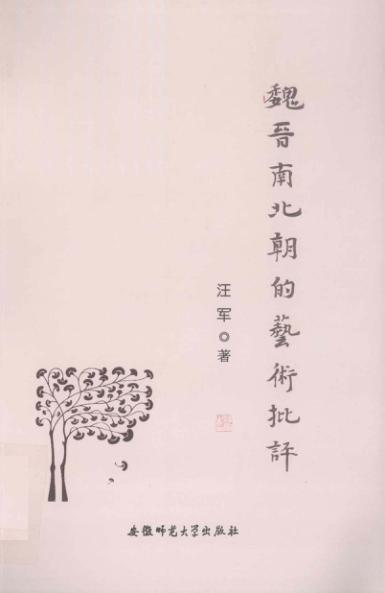 魏晋南北朝的藝術批評
汪军◎著
安徽师范大学出版社